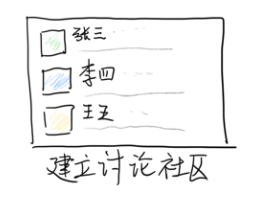 张三
李四
王五
建立讨论社区